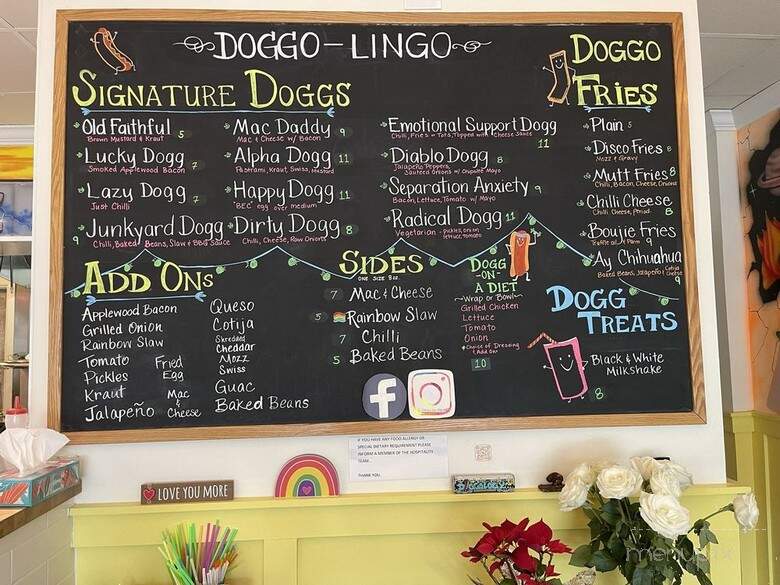 DOGGO-LINGO
SIGNATURE DOGGS
Old Faithful 5
Brown Mustard & Kraut
Lucky Dogg 7
Smoked Applewood Bacon
Lazy Dogg 7
Just Chili
Junkyard Dogg 9
Chili, Baked Beans, Slaw & BBQ Sauce
Mac Daddy 9
Mac & Cheese w/ Bacon
Alpha Dogg 11
Pastrami, Kraut, Swiss, Mustard
Happy Dogg 11
"BEC" egg over medium
Dirty Dogg 8
Chili, Cheese, Raw Onions
Emotional Support Dogg 11
Chili, Fries or Tots, Topped with Cheese Sauce
Diablo Dogg 8
Jalapeño Peppers,
Sauteed Onions w/ Chipotle Mayo
Separation Anxiety 9
Bacon, Lettuce, Tomato w/ Mayo
Radical Dogg 11
Vegetarian - pickles, onion,
lettuce, tomato
DOGGO
FRIES
Plain 5
Disco Fries 8
Mozz & Gravy
Mutt Fries 8
Chili, Bacon, Cheese, Onions
Chili Cheese 8
Chili, Cheese,
Boujie Fries 9
Truffle oil & Parm
Ay Chihuahua 9
Baked Beans, Jalapeño & Cotija
Cheese
ADD ONS
Applewood Bacon
Grilled Onion
Rainbow Slaw
Tomato
Pickles
Kraut
Jalapeño
Fried
Egg
Mac
&
Cheese
Queso
Cotija
Shredded
Cheddar
Mozz
Swiss
Guac
Baked Beans
SIDES
ONE SIZE 8 oz.
7 Mac & Cheese
5 Rainbow Slaw
7 Chili
5 Baked Beans
DOGG
-ON-
A DIET
~Wrap or Bowl~
Grilled Chicken
Lettuce
Tomato
Onion
Choice of Dressing
& Add On
10
DOGG
TREATS
Black & White
Milkshake
8
f
IF YOU HAVE ANY FOOD ALLERGY OR
SPECIAL DIETARY REQUIREMENT PLEASE
INFORM A MEMBER OF THE HOSPITALITY
TEAM...
THANK YOU.
LOVE YOU MORE
menupix